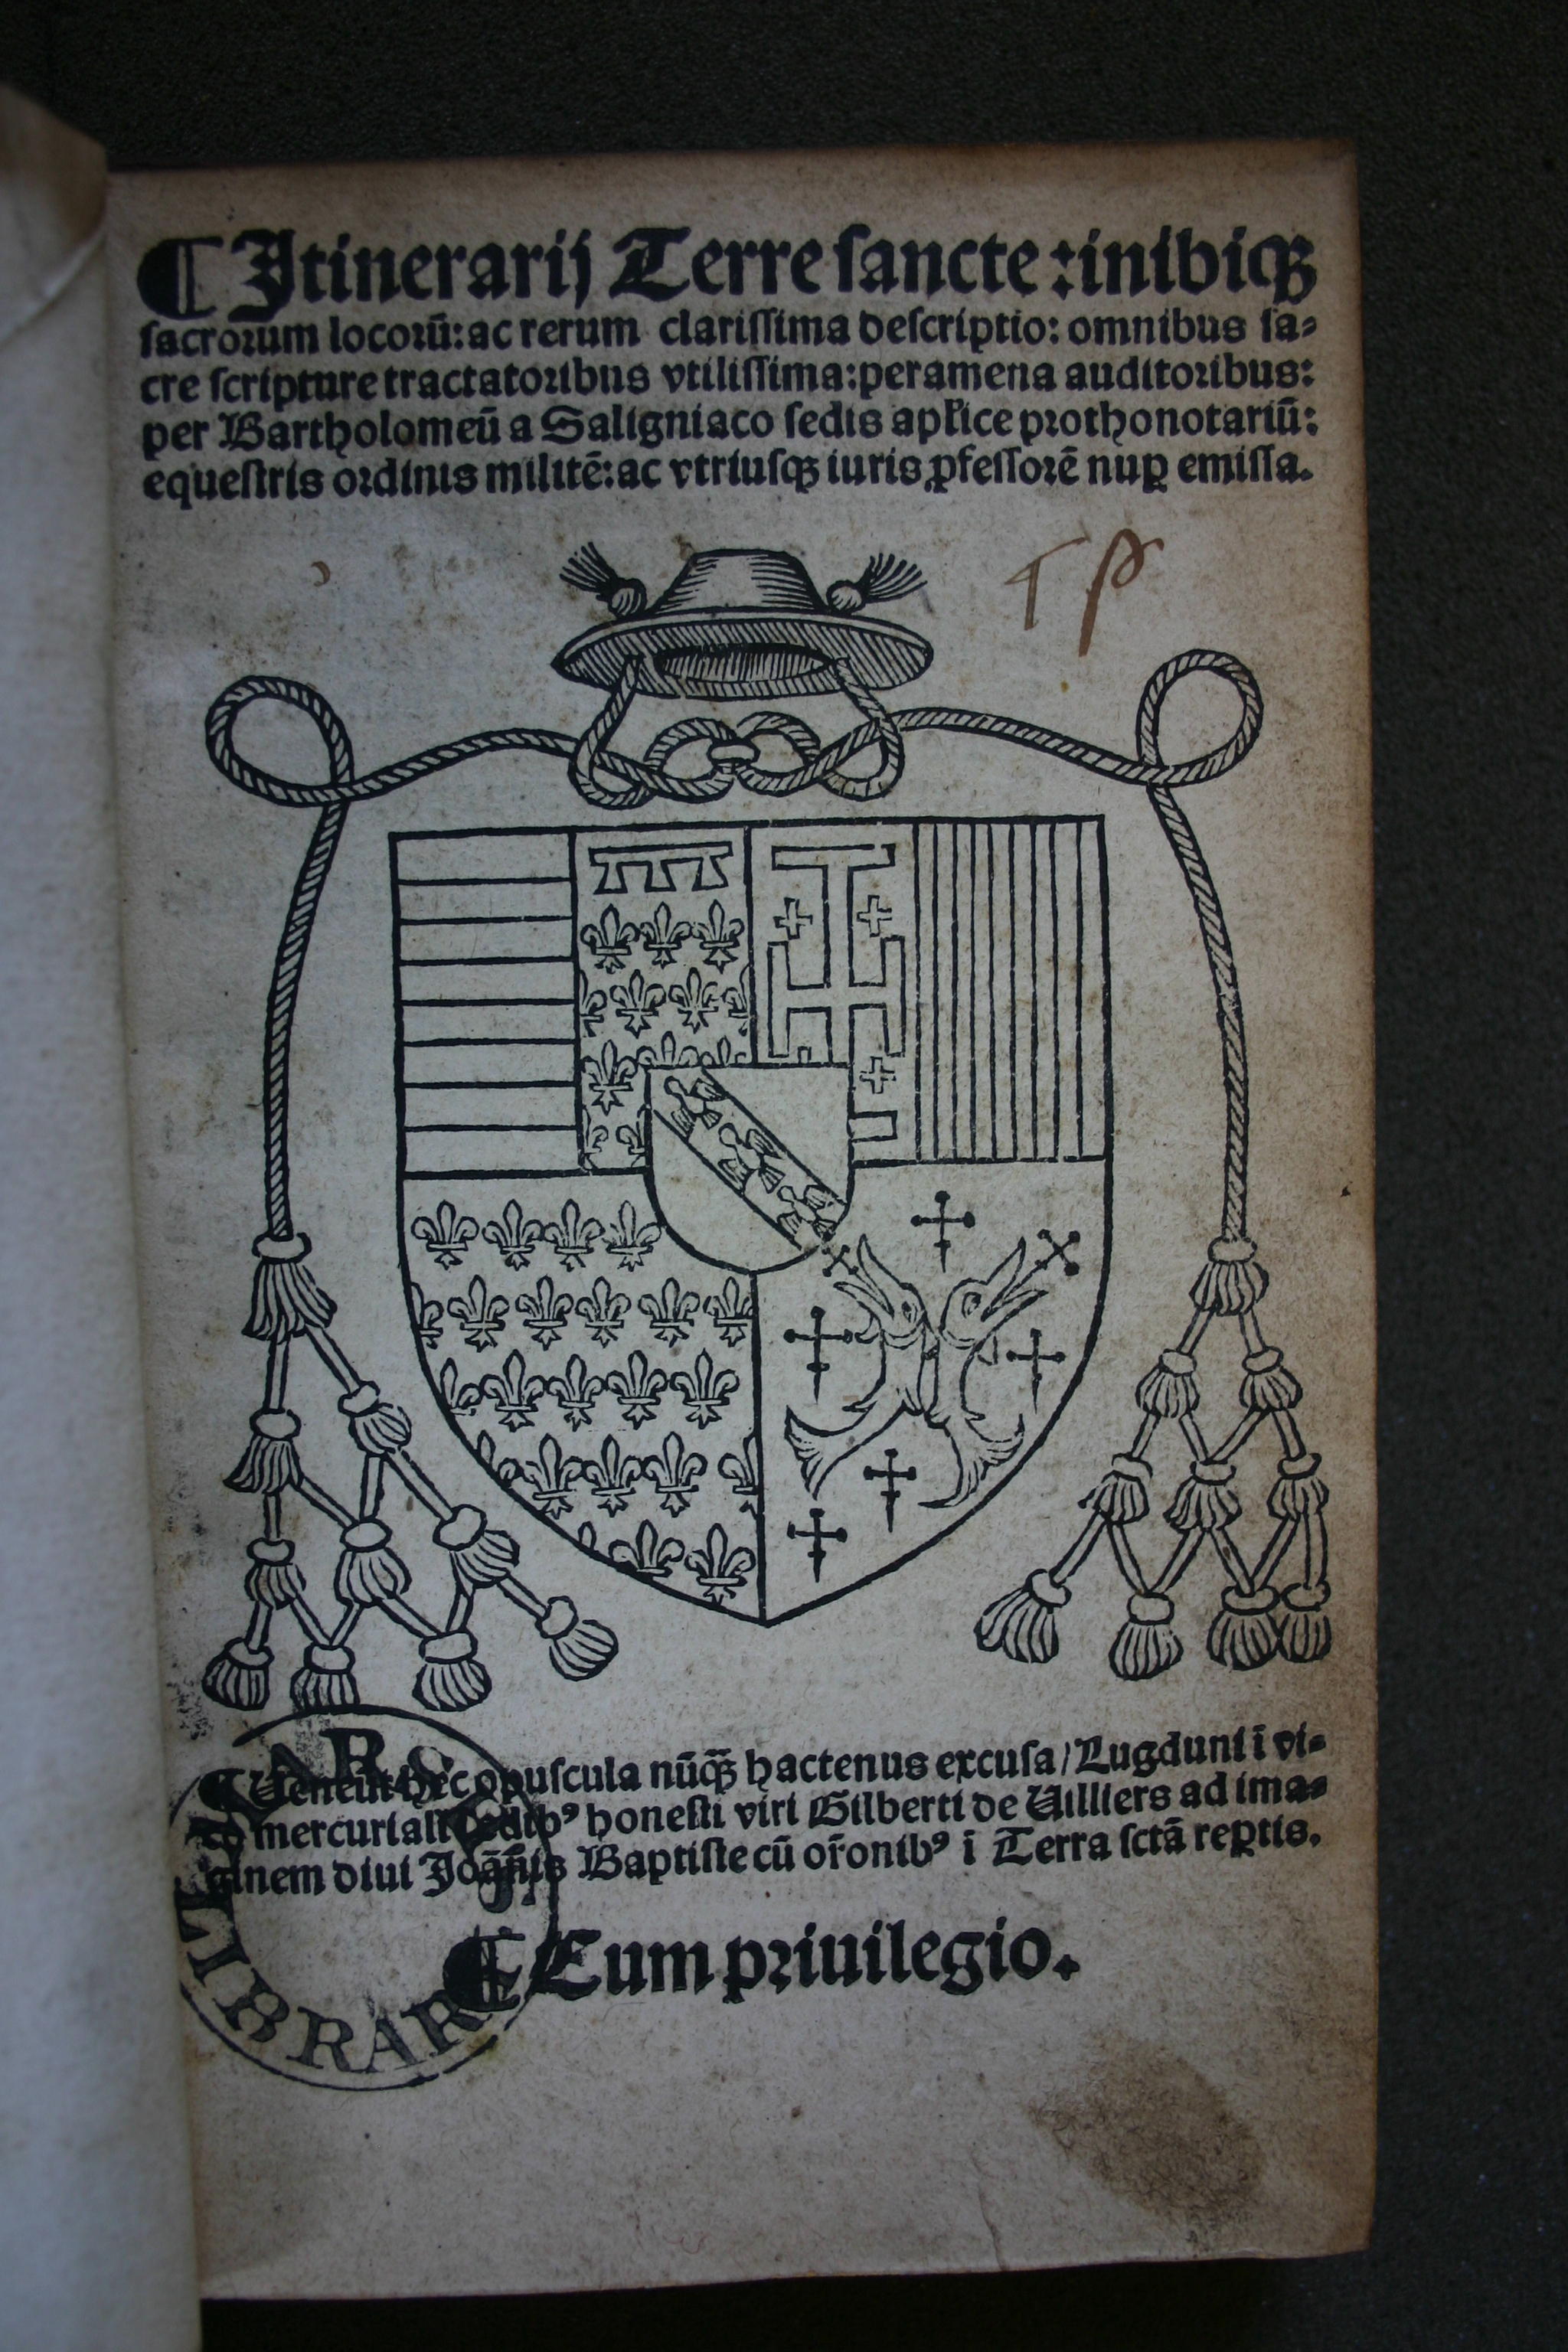 ¶ Itinerarij Terre ſancte: inibiqꝫ
ſacrorum locorū: ac rerum clariſſima deſcriptio: omnibus ſa⸗
cre ſcripture tractatoribus vtiliſſima: peramena auditoribus:
per Bartholomeū a Saligniaco ſedis apl'ice prothonotariū:
equeſtris ordinis militē: ac vtriuſqꝫ iuris ꝓfeſſorē nuꝑ emiſſa.
¶ Ueneūt hec opuſcula nūqꝫ̄ hactenus excuſa / Lugduni ī vi⸗
co mercuriali edibꝰ honeſti viri Gilberti de Uilliers ad ima⸗
ginem diui Joānis Baptiſte cū or̄onibꝰ ī Terra ſctā reꝑtis.
¶ Cum priuilegio.
LIBRAR